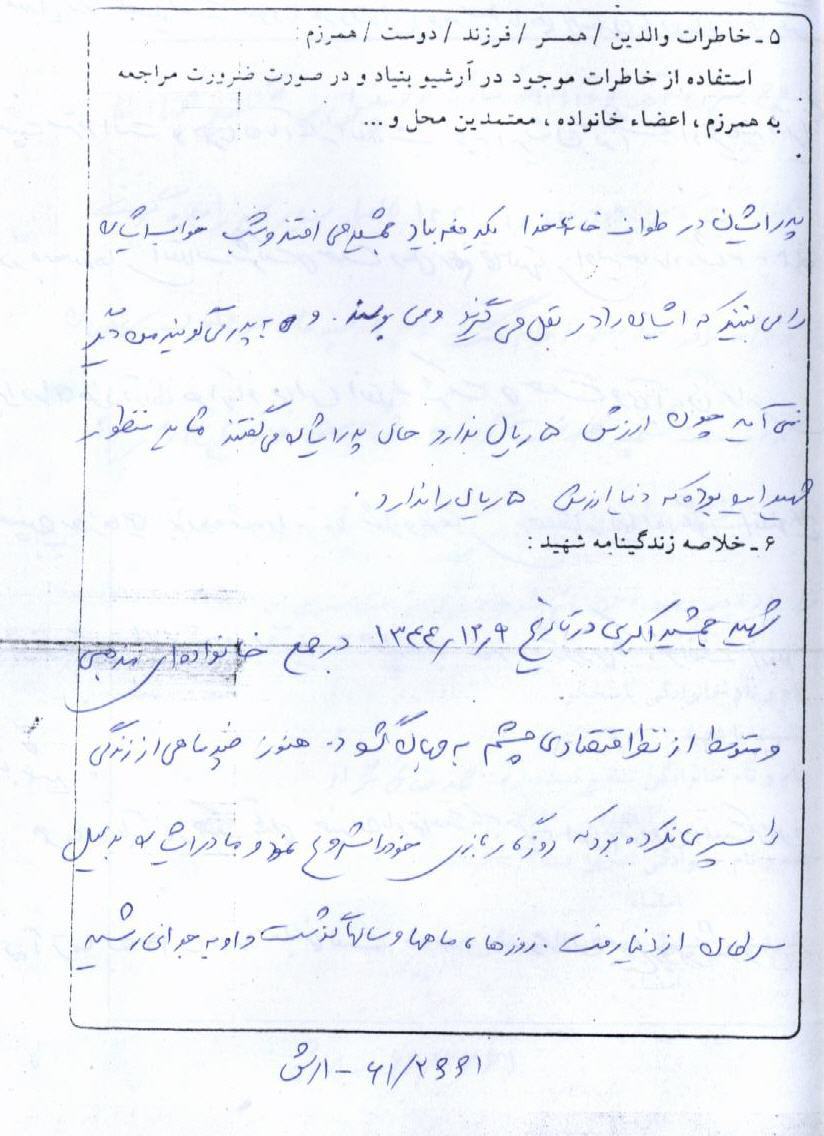 ۵ ـ خاطرات والدین / همسر / فرزند / دوست / همرزم :
استفاده از خاطرات موجود در آرشیو بنیاد و در صورت ضرورت مراجعه
به همرزم ، اعضاء خانواده ، معتمدین محل و ...
پدر ایشان در طواف خانه خدا یکدفعه بیاد جمشید می افتند و شب خواب ایشان
را می بینند که ایشان را در بغل می گیرند و می بوسند . و به پدر می گویند
نمی آید چون ارزش ۵ ریال ندارد حال پدر ایشان می گفتند منظور
شهید این بوده که دنیا ارزش ۵ ریال را ندارد .
۶ ـ خلاصه زندگینامه شهید :
شهید جمشید اکبری در تاریخ ۱۳۴۴/۱۲/۹ در جمع خانواده ای مذهبی
و متوسط از نظر اقتصادی چشم به جهان گشود . هنوز چند ماهی از زندگی
را سپری نکرده بود که روزگار بازی خود را شروع نمود و مادر ایشان به دلیل
سرطان از دنیا رفت . روزها ، ماهها و سالها گذشت و او به جوانی رشید
۶۱/۲۹۹۱ - ارتش